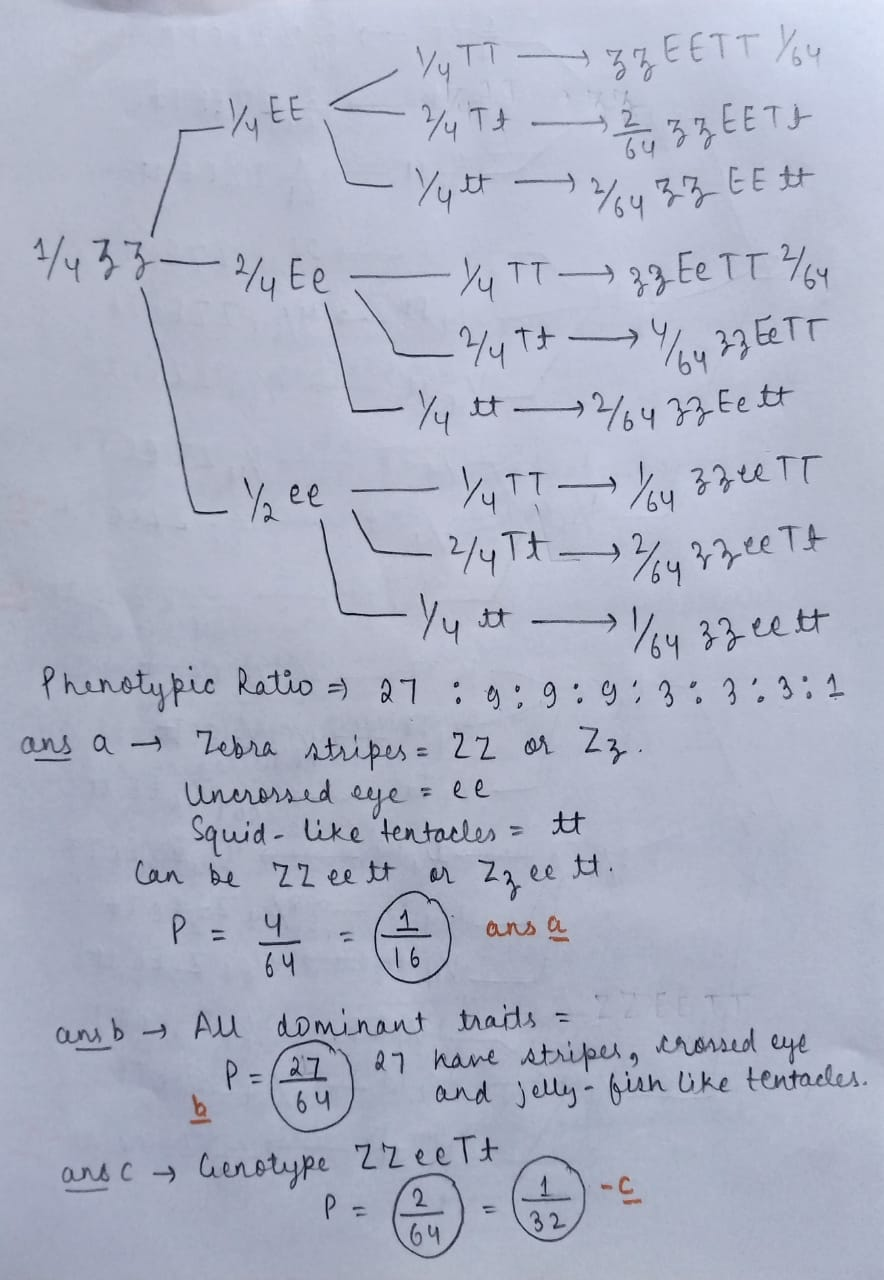 1/4 TT → zzEETT 1/64
1/4 EE 2/4 Tt → 2/64 zzEETt
1/4 tt → 2/64 zz EE tt
1/4 zz 2/4 Ee 1/4 TT → zzEeTT 2/64
2/4 Tt → 4/64 zzEeTT
1/4 tt → 2/64 zzEe tt
1/2 ee 1/4 TT → 1/64 zzeeTT
2/4 Tt → 2/64 zzeeTt
1/4 tt → 1/64 zzeett
Phenotypic Ratio ⇒ 27 : 9 : 9 : 9 : 3 : 3 : 3 : 1
ans a → Zebra stripes = ZZ or Zz.
Uncrossed eye = ee
Squid-like tentacles = tt
Can be ZZ ee tt or Zz ee tt.
P = 4/64 = 1/16 ans a
ans b → All dominant traits = ZZEETT
P = 27/64 27 have stripes, crossed eye
b and jelly-fish like tentacles.
ans c → Genotype ZZeeTt
P = 2/64 = 1/32 - c